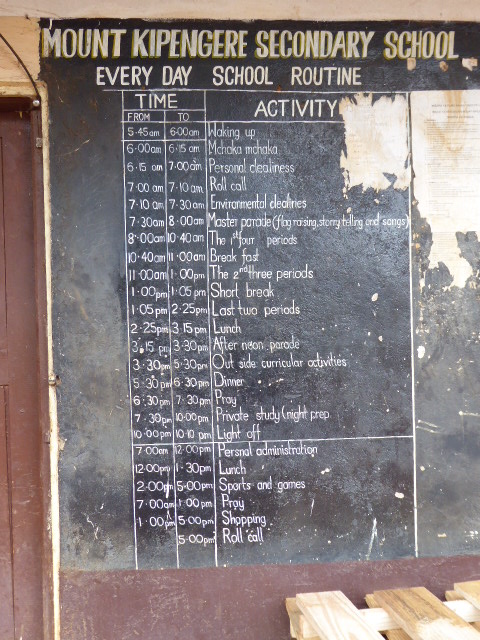 MOUNT KIPENGERE SECONDARY SCHOOL
EVERY DAY SCHOOL ROUTINE
TIME ACTIVITY
FROM TO
5-45am 6:00am Waking up
6:00am 6:15am Mchaka mchaka
6:15am 7:00am Personal clealiness
7:00am 7:10am Roll call
7:10am 7:30am Environmental clealiries
7:30am 8:00am Master parade (flag raising, storry telling and songs)
8:00am 10:40am The 1st four periods
10:40am 11:00am Break fast
11:00am 1:00pm The 2nd three periods
1:00pm 1:05pm Short break
1:05pm 2:25pm Last two periods
2:25pm 3:15pm Lunch
3:15pm 3:30pm After neon parade
3:30pm 5:30pm Out side curricular activities
5:30pm 6:30pm Dinner
6:30pm 7:30pm Pray
7:30pm 10:00pm Private study (night prep
10:00pm 10:10pm Light off
7:00am 12:00pm Persnal administration
12:00pm 1:30pm Lunch
2:00pm 5:00pm Sports and games
7:00am 1:00pm Pray
1:00pm 5:00pm Shopping
5:00pm Roll call